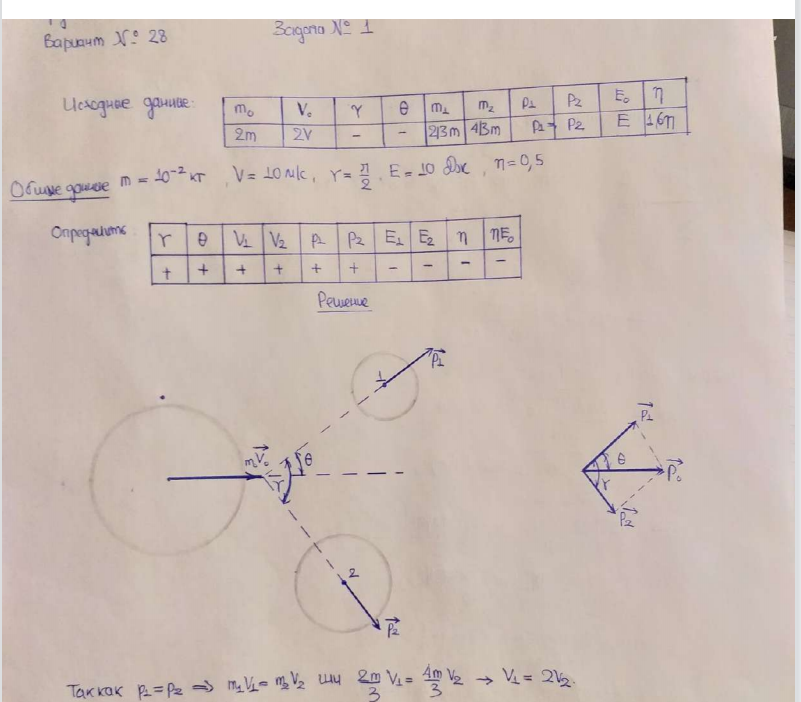 Вариант № 28
Задача № 1
Исходные данные:
m₀ V₀ γ θ m₁ m₂ p₁ p₂ E₀ η
2m 2V – – 2/3m 4/3m p₁= p₂ E 1,6η
Общие данные m = 10⁻² кг , V = 10 м/с , γ = π/2 , E = 10 Дж , η = 0,5
Определить
γ θ V₁ V₂ p₁ p₂ E₁ E₂ η ηE₀
+ + + + + + – – – –
Решение
1 p₁
m₀V₀ θ
γ
2
p₂
p₁
θ
γ p₀
p₂
Так как p₁ = p₂ ⇒ m₁V₁ = m₂V₂ или 2m/3 V₁ = 4m/3 V₂ → V₁ = 2V₂.